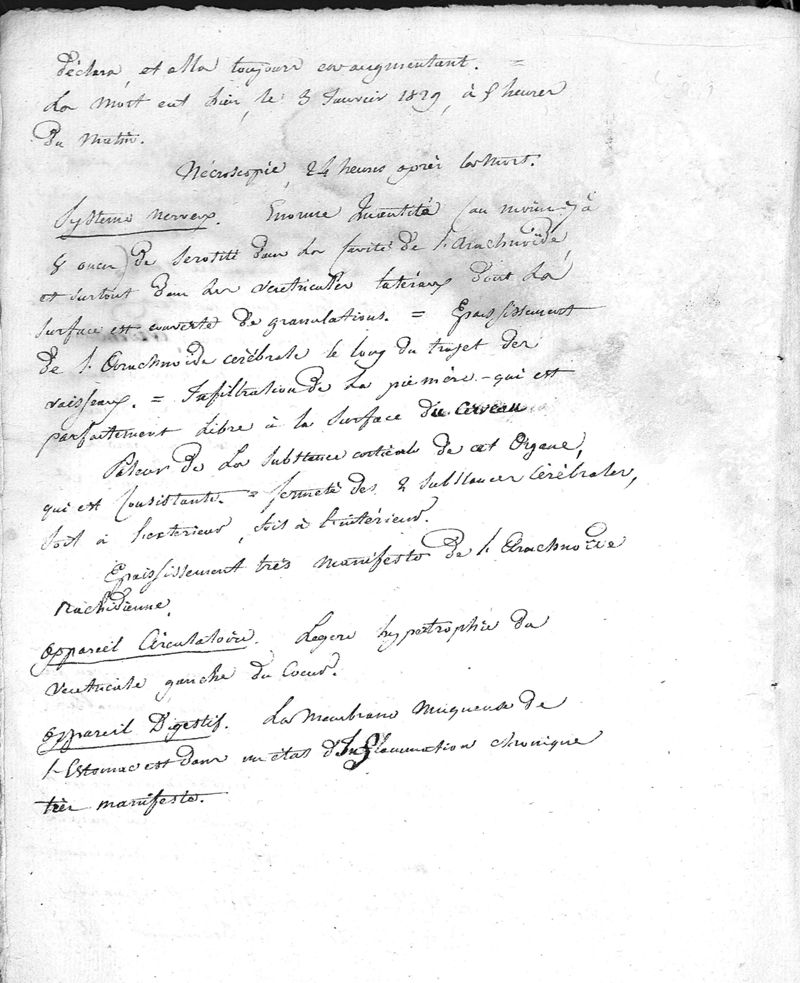 déclara, et alla toujours en augmentant. =
La mort eut lieu, le 3 Janvier 1829, à 5 heures
du matin.
Nécroscopie, 24 heures après la mort.
Système nerveux. Enorme quantité (au moins 7 à
8 onces) de serosité dans la cavité de l'arachnoïde,
et surtout dans les ventricules latéraux dont la
surface est couverte de granulations. = Epaississement
de l'Arachnoïde cérébrale le long du trajet des
vaisseaux. = Infiltration de la pie mère - qui est
parfaitement libre à la surface du cerveau
Paleur de la substance corticale de cet Organe,
qui est Consistante. = fermeté des 2 substances Cérébrales,
soit à l'exterieur, soit à l'intérieur.
Epaississement très manifeste de l'Arachnoïde
rachidienne.
Appareil Circulatoire. Légère hypertrophie du
ventricule gauche du Coeur.
Appareil Digestif. La Membrane Muqueuse de
l'Estomac est dans un état d'Inflammation chronique
très manifeste.